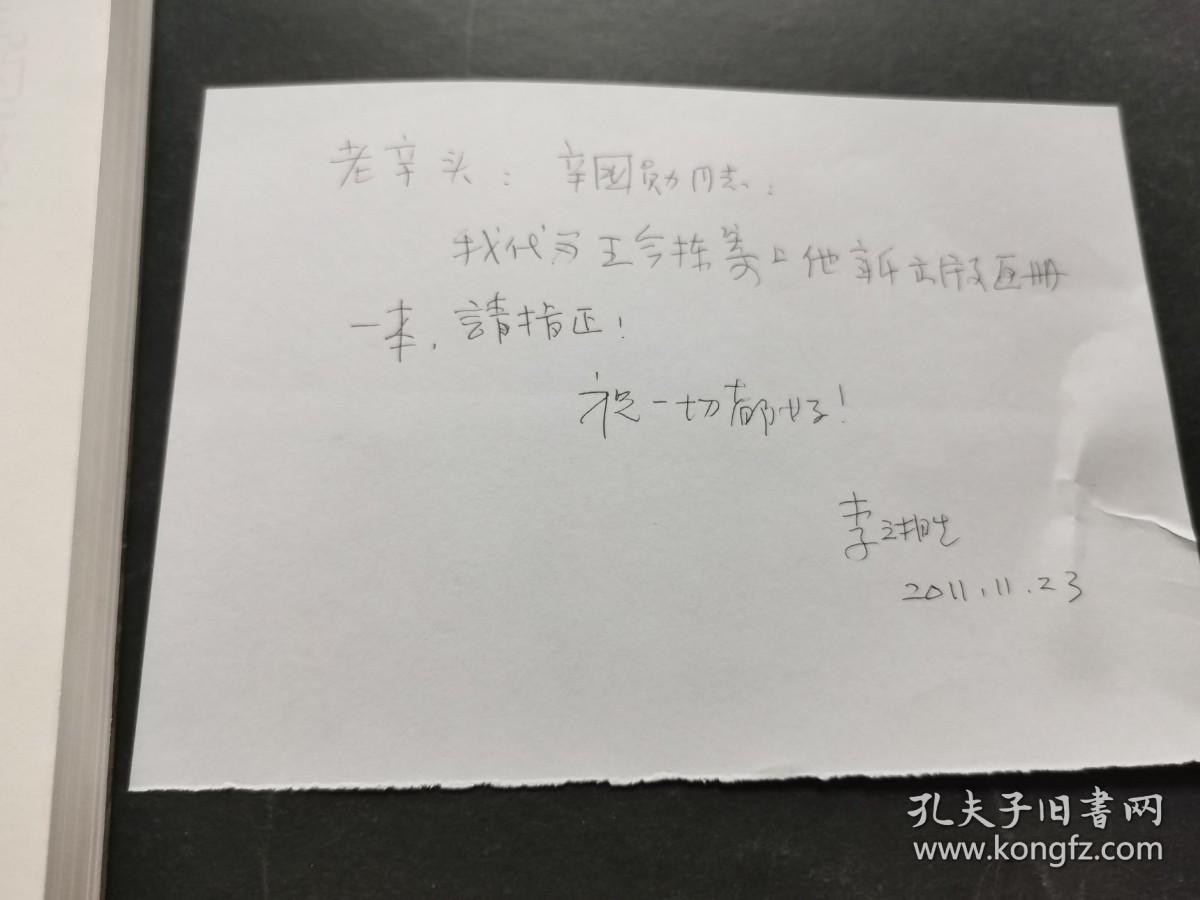 老辛头: 辛国勋同志:
我代为王今栋寄上他新出版画册
一本,請指正!
祝一切都好!
李
2011.11.23
孔夫子旧書网
www.kongfz.com